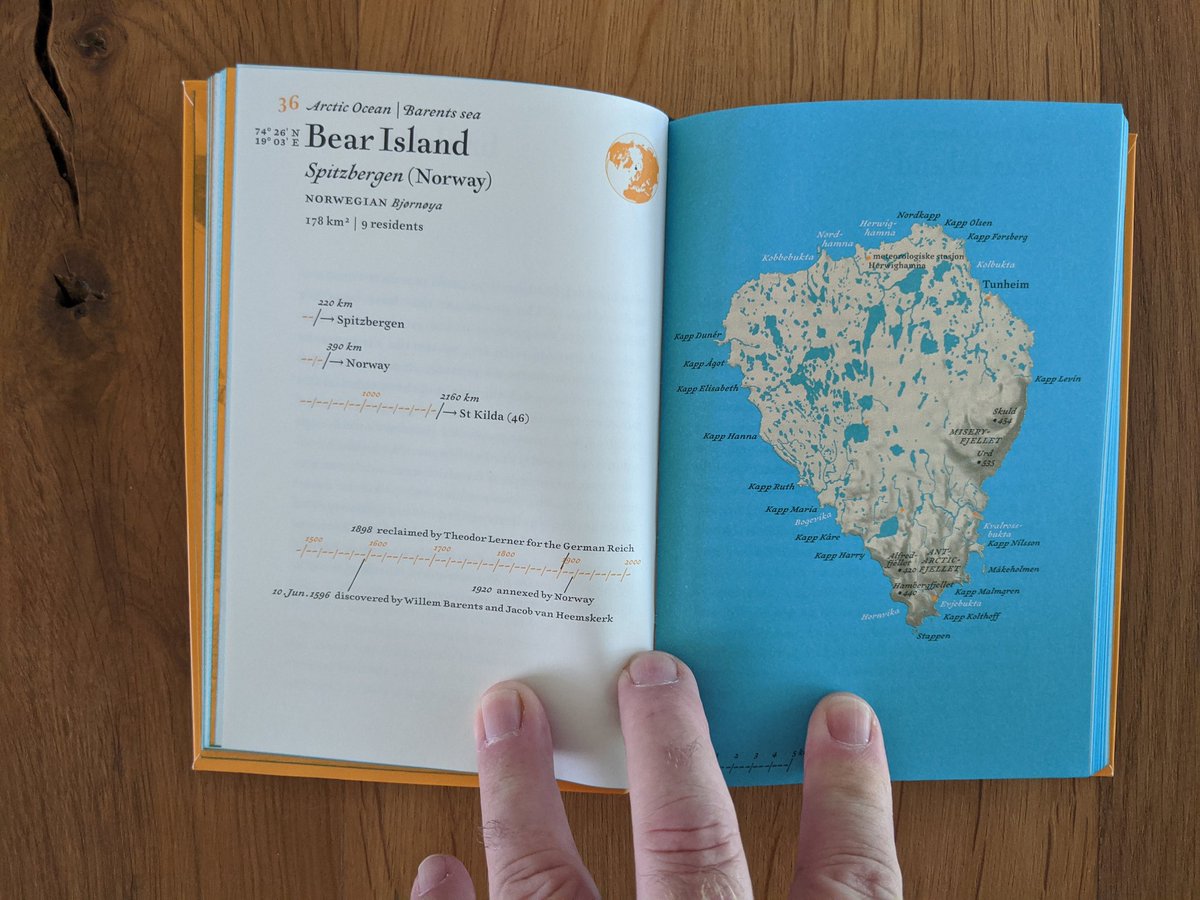 36 Arctic Ocean | Barents sea
74° 26' N
19° 03' E
Bear Island
Spitzbergen (Norway)
NORWEGIAN Bjørnøya
178 km² | 9 residents
220 km
--/→ Spitzbergen
390 km
--/--/→ Norway
1000
2160 km
→ St Kilda (46)
1898 reclaimed by Theodor Lerner for the German Reich
1500
1600
1700
1800
1900
2000
1920 annexed by Norway
10 Jun. 1596 discovered by Willem Barents and Jacob van Heemskerk
Nordkapp
Herwig-
hamna
Kapp Olsen
Nord-
hamna
Kapp Forsberg
Kobbebukta
meteorologiske stasjon
Herwighamna
Kolbukta
Tunheim
Kapp Dunér
Kapp Ågot
Kapp Levin
Kapp Elisabeth
Skuld
454
Kapp Hanna
MISERY-
FJELLET
Urd
535
Kapp Ruth
Kapp Maria
Bogevika
Kvalross-
bukta
Kapp Kåre
Kapp Nilsson
Kapp Harry
Alfred-
fjellet
420
ANT-
ARCTIC-
FJELLET
Måkeholmen
Hambergfjellet
440
Kapp Malmgren
Evjebukta
Hornvika
Kapp Kolthoff
Stappen
2 3 4 5